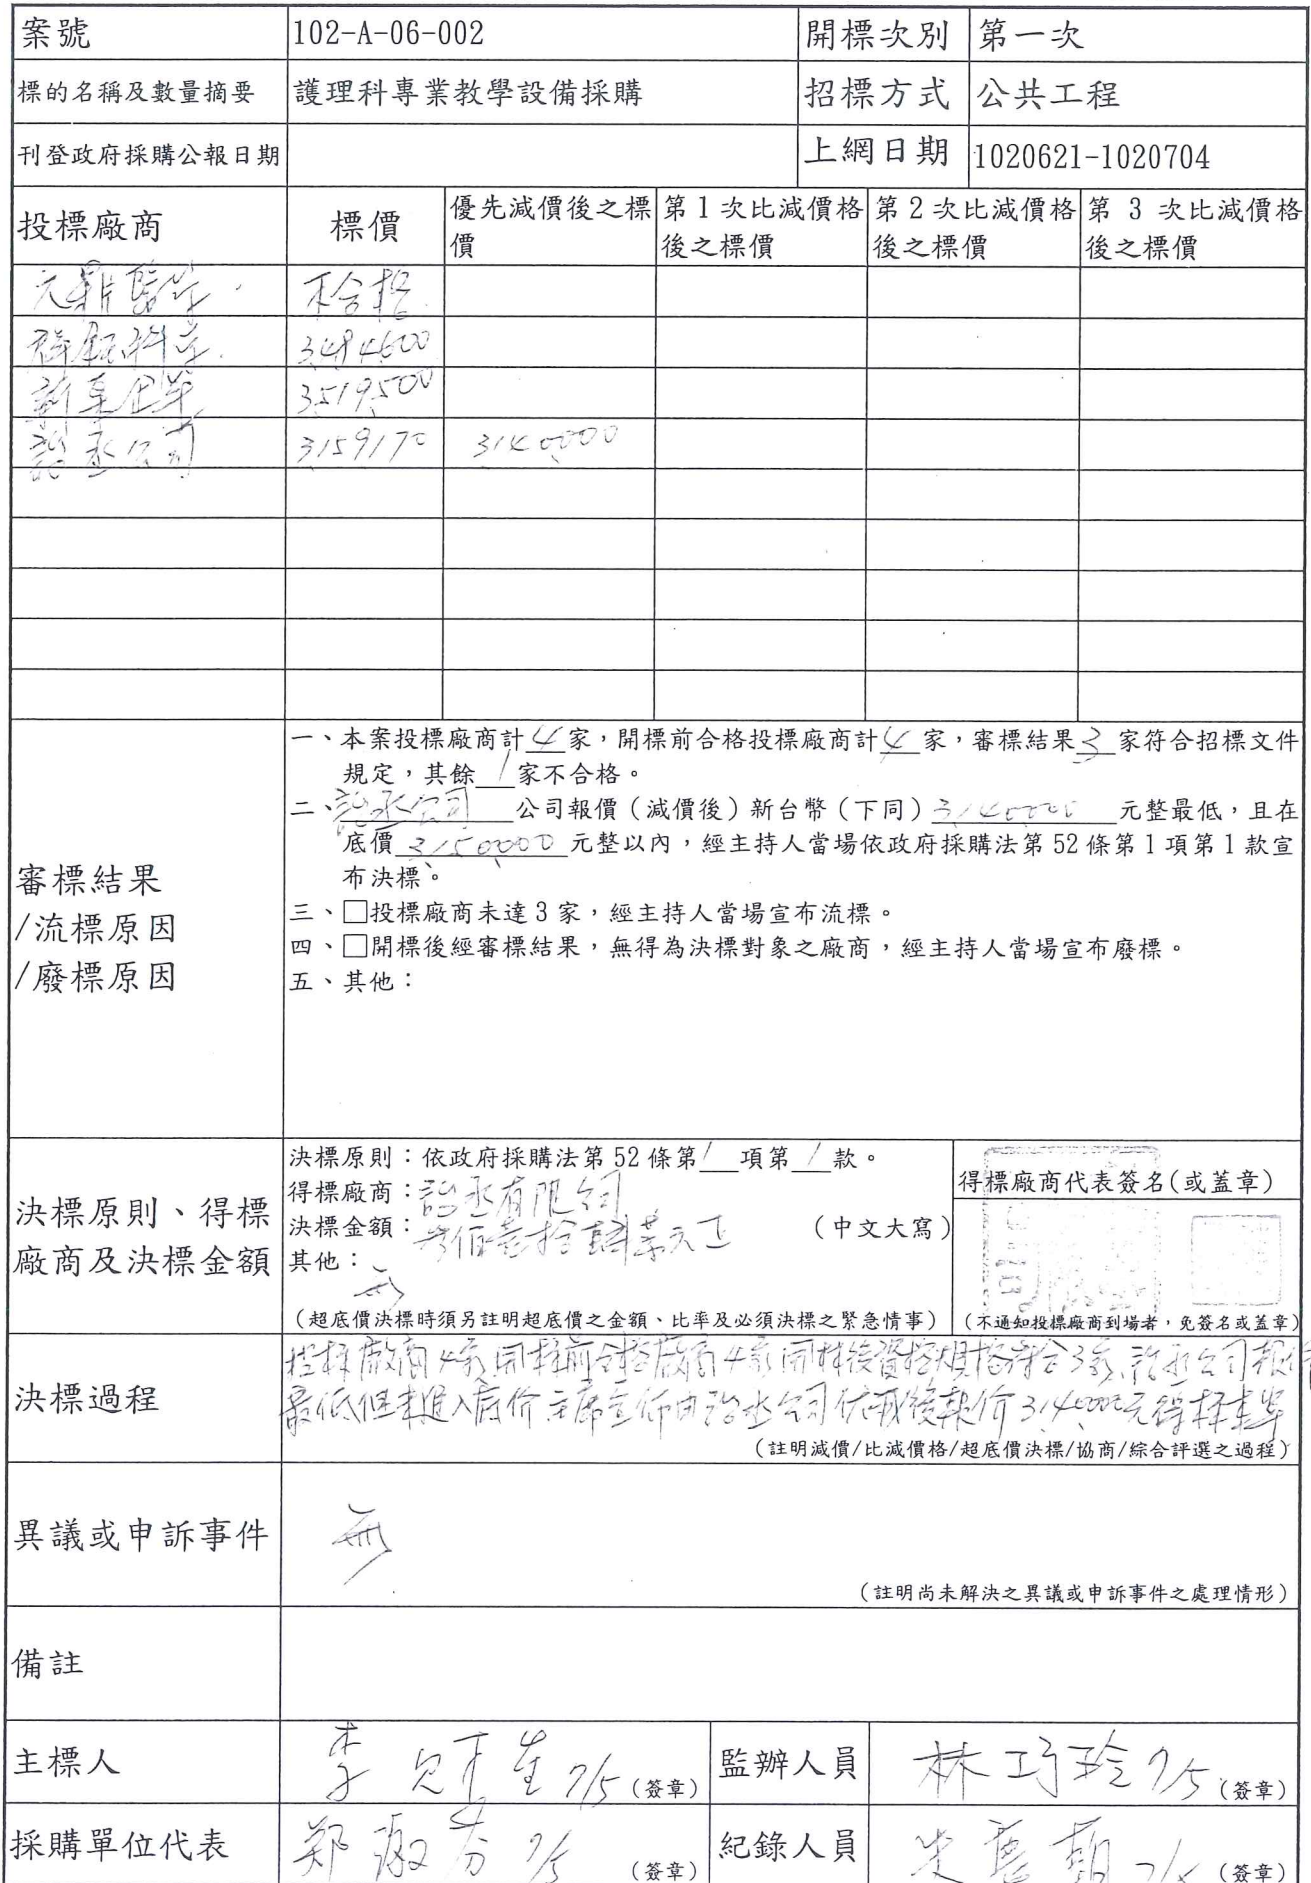 案號 102-A-06-002 開標次別 第一次
標的名稱及數量摘要 護理科專業教學設備採購 招標方式 公共工程
刊登政府採購公報日期 上網日期 1020621-1020704
投標廠商 標價 優先減價後之標價 第1次比減價格後之標價 第2次比減價格後之標價 第3次比減價格後之標價
不合格
3484600
3519500
公司 3159170 3140000
審標結果
/流標原因
/廢標原因
一、本案投標廠商計4家，開標前合格投標廠商計4家，審標結果3家符合招標文件
規定，其餘1家不合格。
二、公司 公司報價（減價後）新台幣（下同）3140000元整最低，且在
底價3150000元整以內，經主持人當場依政府採購法第52條第1項第1款宣
布決標。
三、□投標廠商未達3家，經主持人當場宣布流標。
四、□開標後經審標結果，無得為決標對象之廠商，經主持人當場宣布廢標。
五、其他：
決標原則、得標
廠商及決標金額
決標原則：依政府採購法第52條第1項第1款。
得標廠商：有限公司
決標金額：（中文大寫）
其他：無
（超底價決標時須另註明超底價之金額、比率及必須決標之緊急情事）
得標廠商代表簽名(或蓋章)
（不通知投標廠商到場者，免簽名或蓋章）
決標過程
投標廠商4家開標前合格廠商4家開標後資格規格符合3家
最低但未進入底价主席宣佈由公司依減後報价3140000元得標
（註明減價/比減價格/超底價決標/協商/綜合評選之過程）
異議或申訴事件 無
（註明尚未解決之異議或申訴事件之處理情形）
備註
主標人 7/5（簽章） 監辦人員 林巧玲 7/5（簽章）
採購單位代表 郑淑芬 7/5（簽章） 紀錄人員 7/5（簽章）